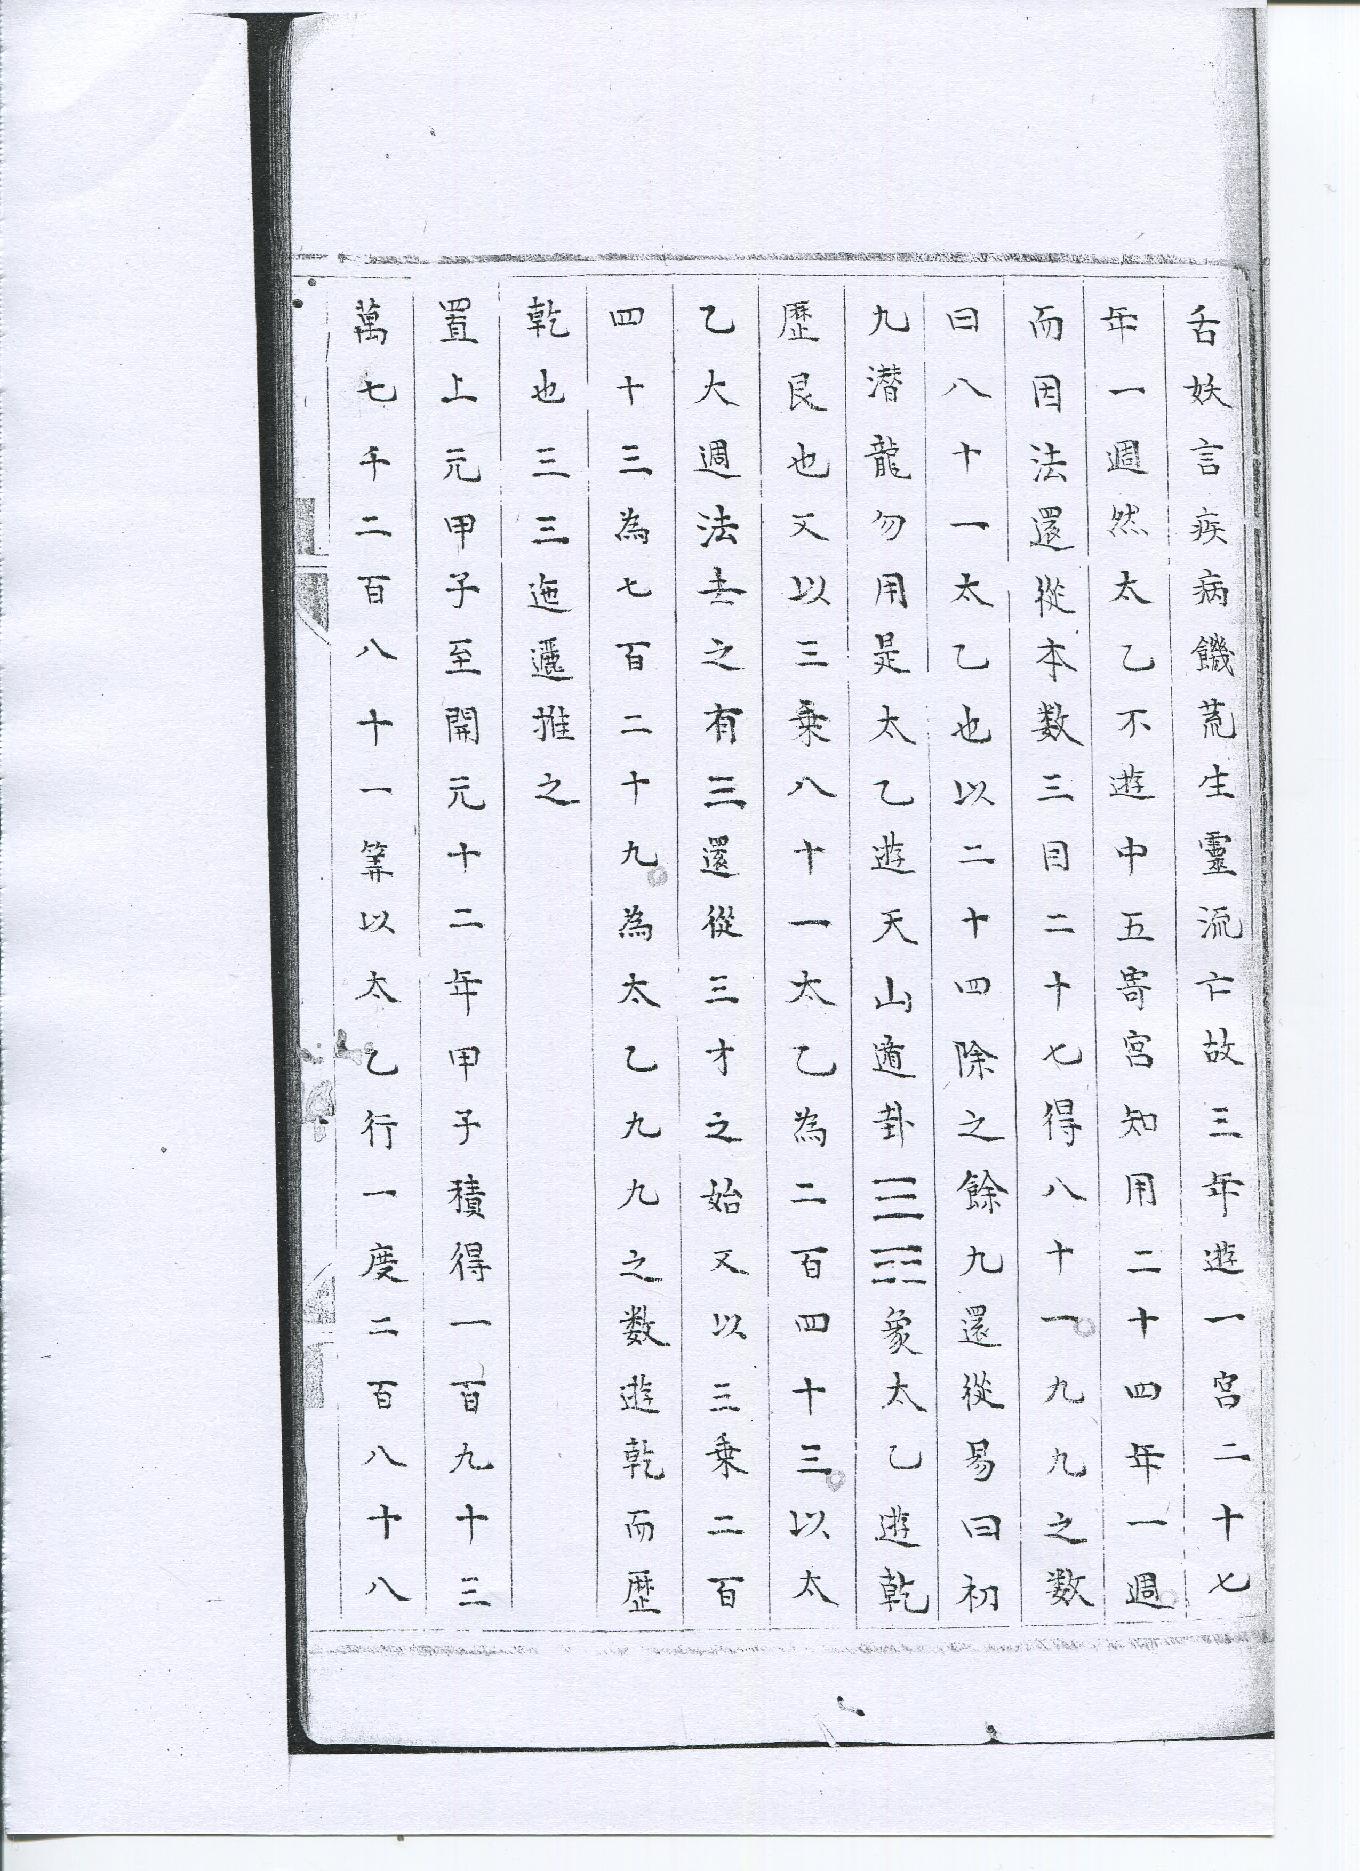 舌妖言疾病饑荒生靈流亡故三年遊一宮二十七
年一週然太乙不遊中五寄宮知用二十四年一週
而因法還從本数三目二十七得八十一九九之数
曰八十一太乙也以二十四除之餘九還從易曰初
九潜龍勿用是太乙遊天山遁卦☰☶象太乙遊乾
歷艮也又以三乗八十一太乙為二百四十三以太
乙大週法去之有三還從三才之始又以三乗二百
四十三為七百二十九為太乙九九之数遊乾而歷
乾也三三迤邐推之
置上元甲子至開元十二年甲子積得一百九十三
萬七千二百八十一筭以太乙行一度二百八十八